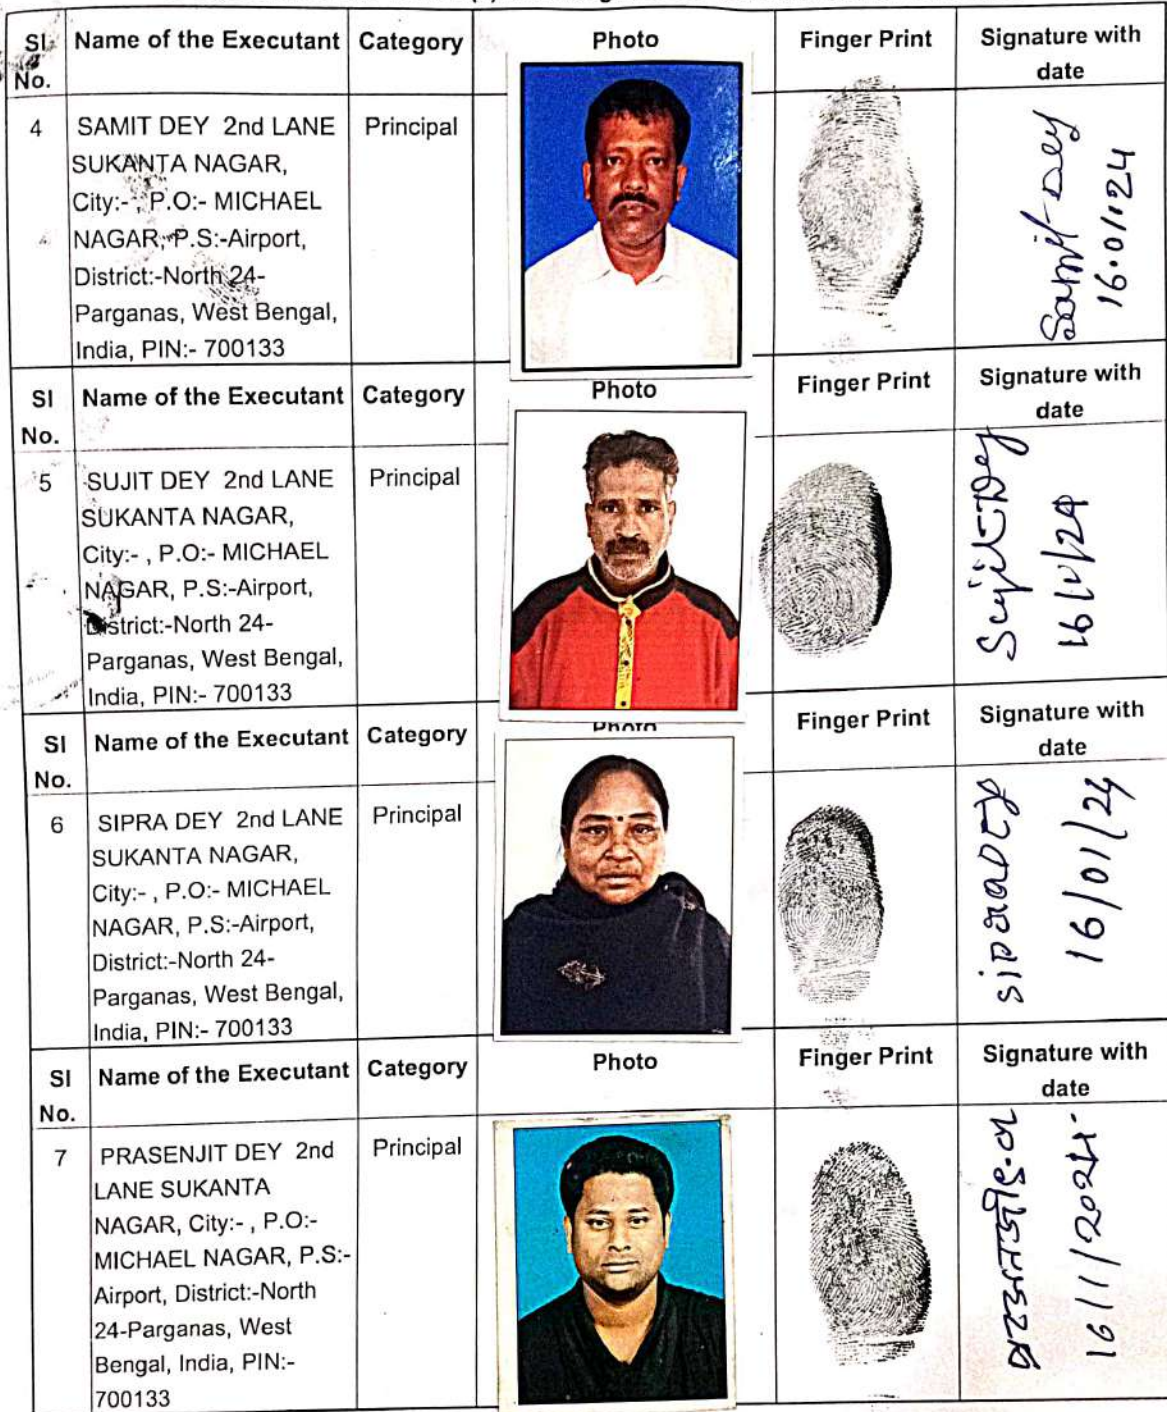 Sl No. Name of the Executant Category Photo Finger Print Signature with date
4 SAMIT DEY 2nd LANE Principal
SUKANTA NAGAR,
City:- , P.O:- MICHAEL
NAGAR, P.S:-Airport,
District:-North 24-
Parganas, West Bengal,
India, PIN:- 700133
Samit Dey
16.01.24
Sl No. Name of the Executant Category Photo Finger Print Signature with date
5 SUJIT DEY 2nd LANE Principal
SUKANTA NAGAR,
City:- , P.O:- MICHAEL
NAGAR, P.S:-Airport,
District:-North 24-
Parganas, West Bengal,
India, PIN:- 700133
Sujit Dey
16/1/24
Sl No. Name of the Executant Category Photo Finger Print Signature with date
6 SIPRA DEY 2nd LANE Principal
SUKANTA NAGAR,
City:- , P.O:- MICHAEL
NAGAR, P.S:-Airport,
District:-North 24-
Parganas, West Bengal,
India, PIN:- 700133
16/01/24
Sl No. Name of the Executant Category Photo Finger Print Signature with date
7 PRASENJIT DEY 2nd Principal
LANE SUKANTA
NAGAR, City:- , P.O:-
MICHAEL NAGAR, P.S:-
Airport, District:-North
24-Parganas, West
Bengal, India, PIN:-
700133
16/1/2024.